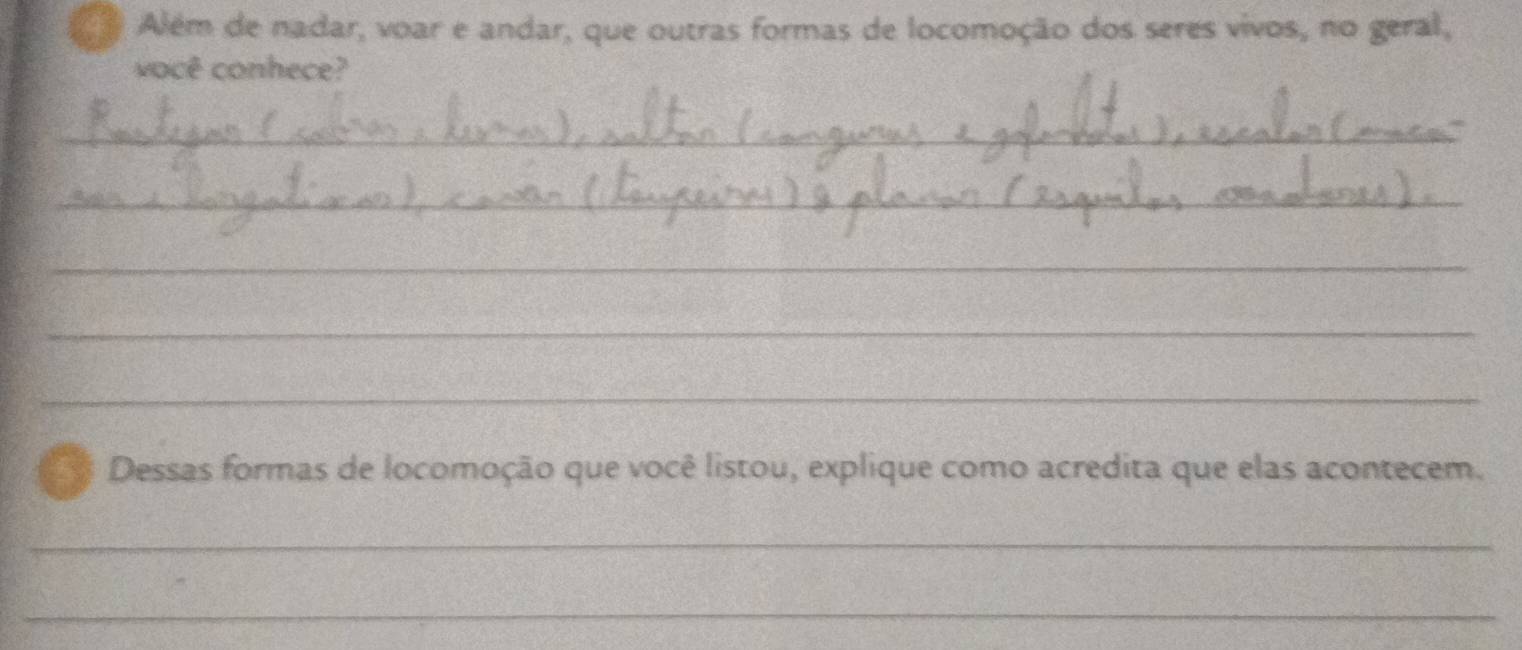 4 Além de nadar, voar e andar, que outras formas de locomoção dos seres vivos, no geral,
você conhece?
Rastejar (cobras e lesmas), saltar (cangurus e gafanhotos), escalar (maca-
cos e lagartixas), cavar (toupeiras) e planar (esquilos voadores).
5 Dessas formas de locomoção que você listou, explique como acredita que elas acontecem.